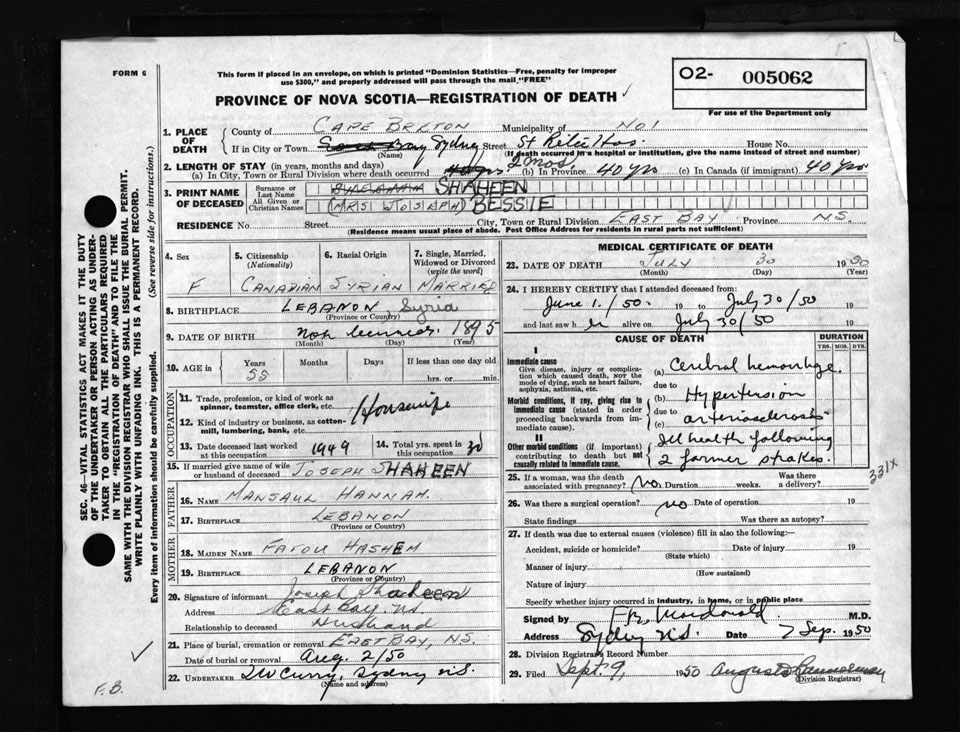 FORM 6
This form if placed in an envelope, on which is printed "Dominion Statistics—Free, penalty for improper
use $300," and properly addressed will pass through the mail "FREE"
O2- 005062
For use of the Department only
PROVINCE OF NOVA SCOTIA—REGISTRATION OF DEATH
1. PLACE OF DEATH
County of CAPE BRETON Municipality of No 1
If in City or Town Sydney Street St Rita Hos. House No.
(Name) (If death occurred in a hospital or institution, give the name instead of street and number)
2. LENGTH OF STAY (in years, months and days)
(a) In City, Town or Rural Division where death occurred 2 mos (b) In Province 40 yrs (c) In Canada (if immigrant) 40 yrs
3. PRINT NAME OF DECEASED
Surname or Last Name SHAHEEN
All Given or Christian Names (MRS JOSEPH) BESSIE
RESIDENCE No. Street City, Town or Rural Division EAST BAY Province N.S.
(Residence means usual place of abode. Post Office Address for residents in rural parts not sufficient)
4. Sex F
5. Citizenship (Nationality) CANADIAN
6. Racial Origin SYRIAN
7. Single, Married, Widowed or Divorced (write the word) MARRIED
8. BIRTHPLACE LEBANON Syria
(Province or Country)
9. DATE OF BIRTH Not 1895
(Month) (Day) (Year)
10. AGE in Years 55 Months Days If less than one day old
hrs. or min.
OCCUPATION
11. Trade, profession, or kind of work as
spinner, teamster, office clerk, etc. Housewife
12. Kind of industry or business, as cotten-
mill, lumbering, bank, etc.
13. Date deceased last worked at this occupation 1949
14. Total yrs. spent in this occupation 30
15. If married give name of wife or husband of deceased JOSEPH SHAHEEN
FATHER
16. NAME MANSAUL HANNAH.
17. BIRTHPLACE LEBANON
(Province or Country)
MOTHER
18. MAIDEN NAME FATOU HASHEM
19. BIRTHPLACE LEBANON
(Province or Country)
20. Signature of informant Joseph Shaheen
Address East Bay N.S.
Relationship to deceased Husband
21. Place of burial, cremation or removal EAST BAY, N.S.
Date of burial or removal Aug. 2/50
22. UNDERTAKER DW Curry, Sydney N.S.
(Name and address)
F.B.
MEDICAL CERTIFICATE OF DEATH
23. DATE OF DEATH July 30 1950
(Month) (Day) (Year)
24. I HEREBY CERTIFY that I attended deceased from:
June 1./50 19 to July 30/50 19
and last saw her alive on July 30/50 19
CAUSE OF DEATH
DURATION
YRS. MOS. DYS.
I
Immediate cause
Give disease, injury or complication which caused death, NOT the mode of dying, such as heart failure, asphyxia, asthenia, etc.
(a) Cerebral hemorrhage.
due to
Morbid conditions, if any, giving rise to immediate cause (stated in order proceeding backwards from immediate cause).
(b) Hypertension
due to
(c) arteriosclerosis
II
Other morbid conditions (if important) contributing to death but not causally related to immediate cause.
Ill health following
2 former strokes.
331X
25. If a woman, was the death associated with pregnancy? No. Duration weeks. Was there a delivery?
26. Was there a surgical operation? no Date of operation 19
State findings Was there an autopsy?
27. If death was due to external causes (violence) fill in also the following:—
Accident, suicide or homicide? Date of injury 19
(State which)
Manner of injury
(How sustained)
Nature of injury
Specify whether injury occurred in Industry, in home, or in public place
Signed by Macdonald M.D.
Address Sydney N.S. Date 7 Sep. 1950
28. Division Registrar's Record Number
29. Filed Sept. 9, 1950
(Division Registrar)
SEC. 46—VITAL STATISTICS ACT MAKES IT THE DUTY
OF THE UNDERTAKER OR PERSON ACTING AS UNDER-
TAKER TO OBTAIN ALL THE PARTICULARS REQUIRED
IN THE "REGISTRATION OF DEATH" AND TO FILE THE
SAME WITH THE DIVISION REGISTRAR WHO SHALL ISSUE THE BURIAL PERMIT.
WRITE PLAINLY WITH UNFADING INK. THIS IS A PERMANENT RECORD.
Every item of information should be carefully supplied. (See reverse side for instructions.)